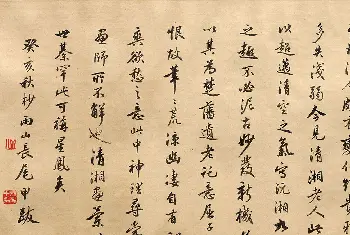 多失淺弱今見清湘老人此
以超逸清空之氣寫沅湘九
之趣不必泥古妙發新機
以其為楚藩遺老託意屈子
恨故筆〻荒涼幽淒自有
奧欲愁之意此中神理尋常
画師所不解也清湘畫
世綦罕此可稱星鳳矣
癸亥秋杪雨山長尾甲跋